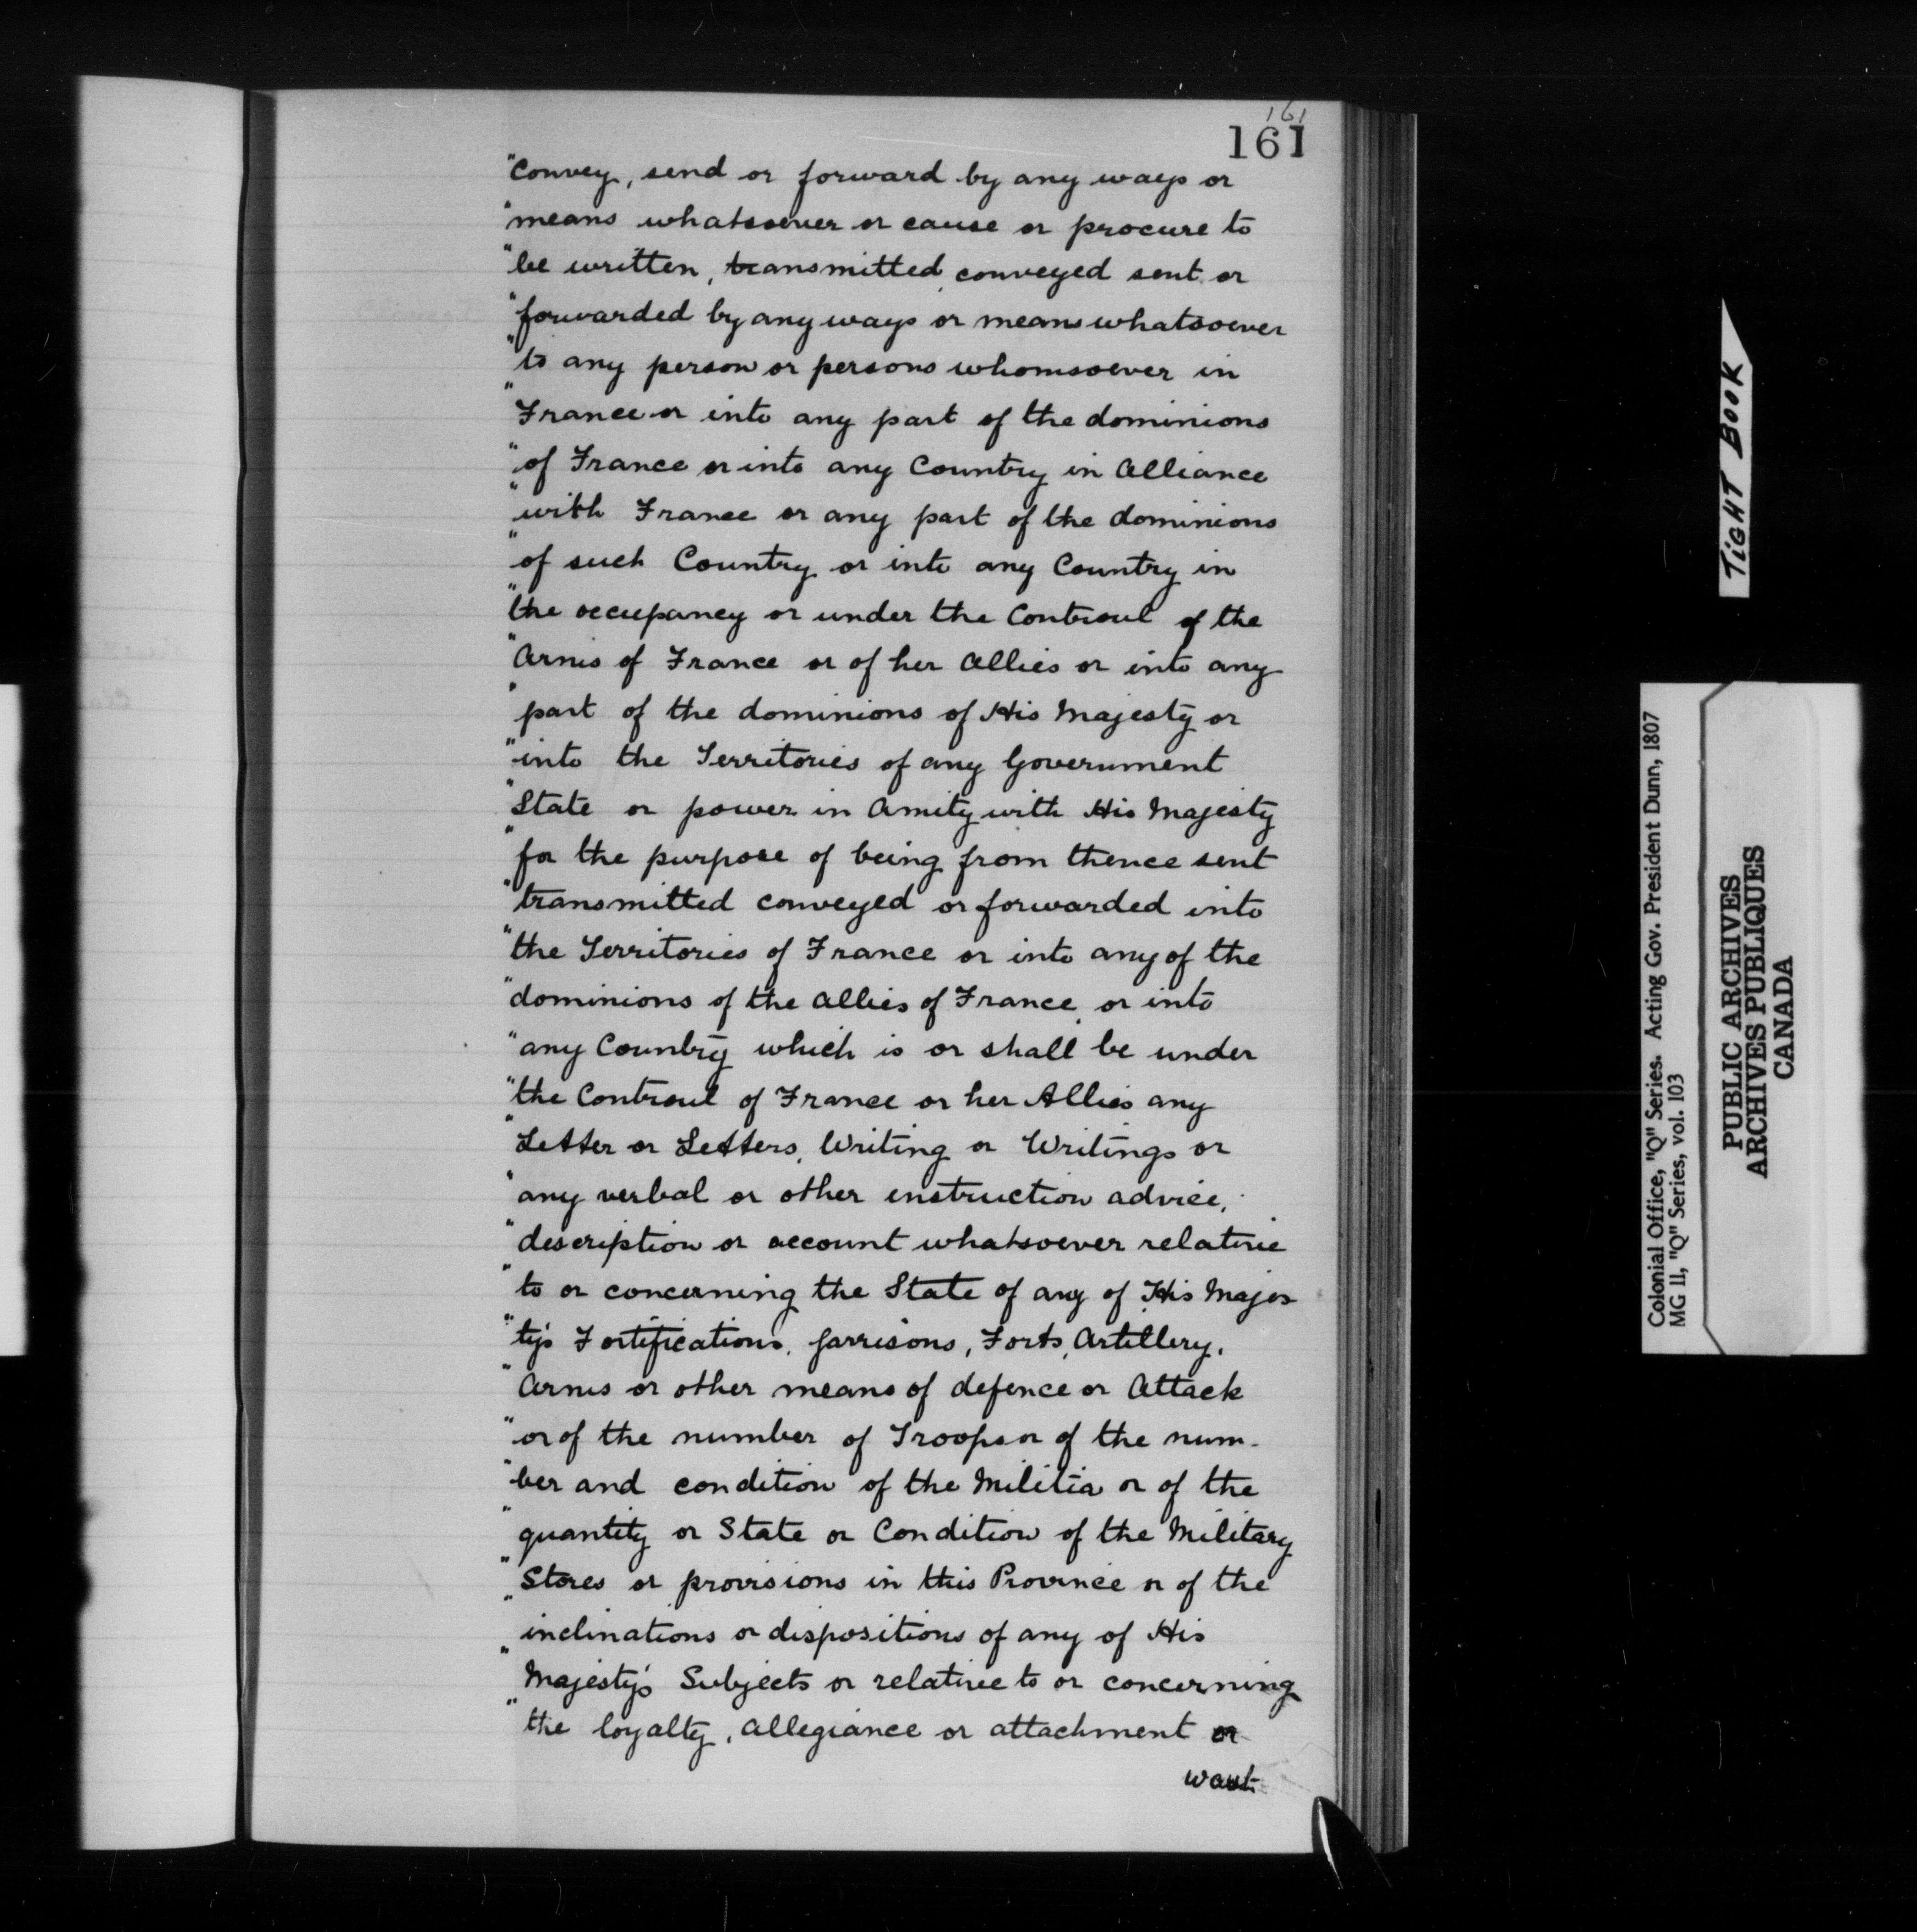 161
161
"Convey, send or forward by any ways or
"means whatsoever or cause or procure to
"be written, transmitted, conveyed sent or
"forwarded by any ways or means whatsoever
"to any person or persons whomsoever in
"France or into any part of the dominions
"of France or into any Country in Alliance
"with France or any part of the dominions
"of such Country or into any Country in
"the occupancy or under the Controul of the
"Arms of France or of her Allies or into any
"part of the dominions of His Majesty or
"into the Territories of any Government
"State or power in Amity with His Majesty
"for the purpose of being from thence sent
"transmitted conveyed or forwarded into
"the Territories of France or into any of the
"dominions of the Allies of France, or into
"any Country which is or shall be under
"the Controul of France or her Allies any
"Letter or Letters, Writing or Writings or
"any verbal or other instruction advice,
"description or account whatsoever relative
"to or concerning the State of any of His Majes
"ty's Fortifications, Garrisons, Forts, Artillery,
"Arms or other means of defence or Attack
"or of the number of Troops or of the num-
"ber and condition of the Militia or of the
"quantity or State or Condition of the Military
"Stores or provisions in this Province or of the
"inclinations or dispositions of any of His
"Majesty's Subjects or relative to or concerning
"the loyalty, allegiance or attachment or
want
TIGHT BOOK
Colonial Office, "Q" Series. Acting Gov. President Dunn, 1807
MG 11, "Q" Series, vol. 103
PUBLIC ARCHIVES
ARCHIVES PUBLIQUES
CANADA